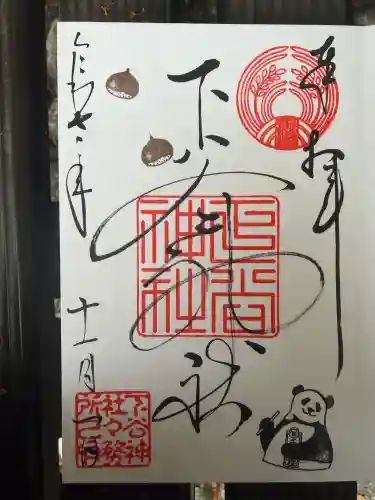 奉拝
下谷神社
下谷
神社
令和七年
十一月
下谷神
社々務
所之印